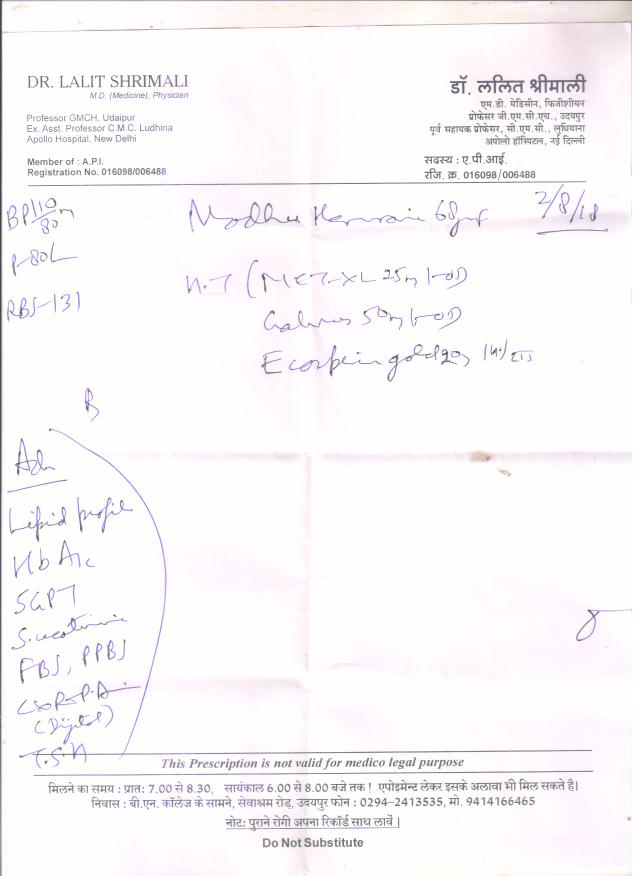 DR. LALIT SHRIMALI
M.D. (Medicine), Physician
Professor GMCH, Udaipur
Ex. Asst. Professor C.M.C. Ludhina
Apollo Hospital, New Delhi
Member of : A.P.I.
Registration No. 016098/006488
डॉ. ललित श्रीमाली
एम.डी. मेडिसीन, फिजीशीयन
प्रोफेसर जी.एम.सी.एच., उदयपुर
पूर्व सहायक प्रोफेसर, सी.एम.सी., लुधियाना
अपोलो हॉस्पिटल, नई दिल्ली
सदस्य : ए.पी.आई.
रजि. क्र. 016098/006488
BP 110/80
2/8/18
RBS-131
MET-XL 25
50
Ecosprin gold 20
Adv
Lipid profile
Hb A1c
SGPT
FBS, PPBS
(Digital)
T.S.H
This Prescription is not valid for medico legal purpose
मिलने का समय : प्रात: 7.00 से 8.30, सायंकाल 6.00 से 8.00 बजे तक ! एपोइमेन्ट लेकर इसके अलावा भी मिल सकते है।
निवास : बी.एन. कॉलेज के सामने, सेवाश्रम रोड़, उदयपुर फोन : 0294-2413535, मो. 9414166465
नोट: पुराने रोगी अपना रिकॉर्ड साथ लावें।
Do Not Substitute